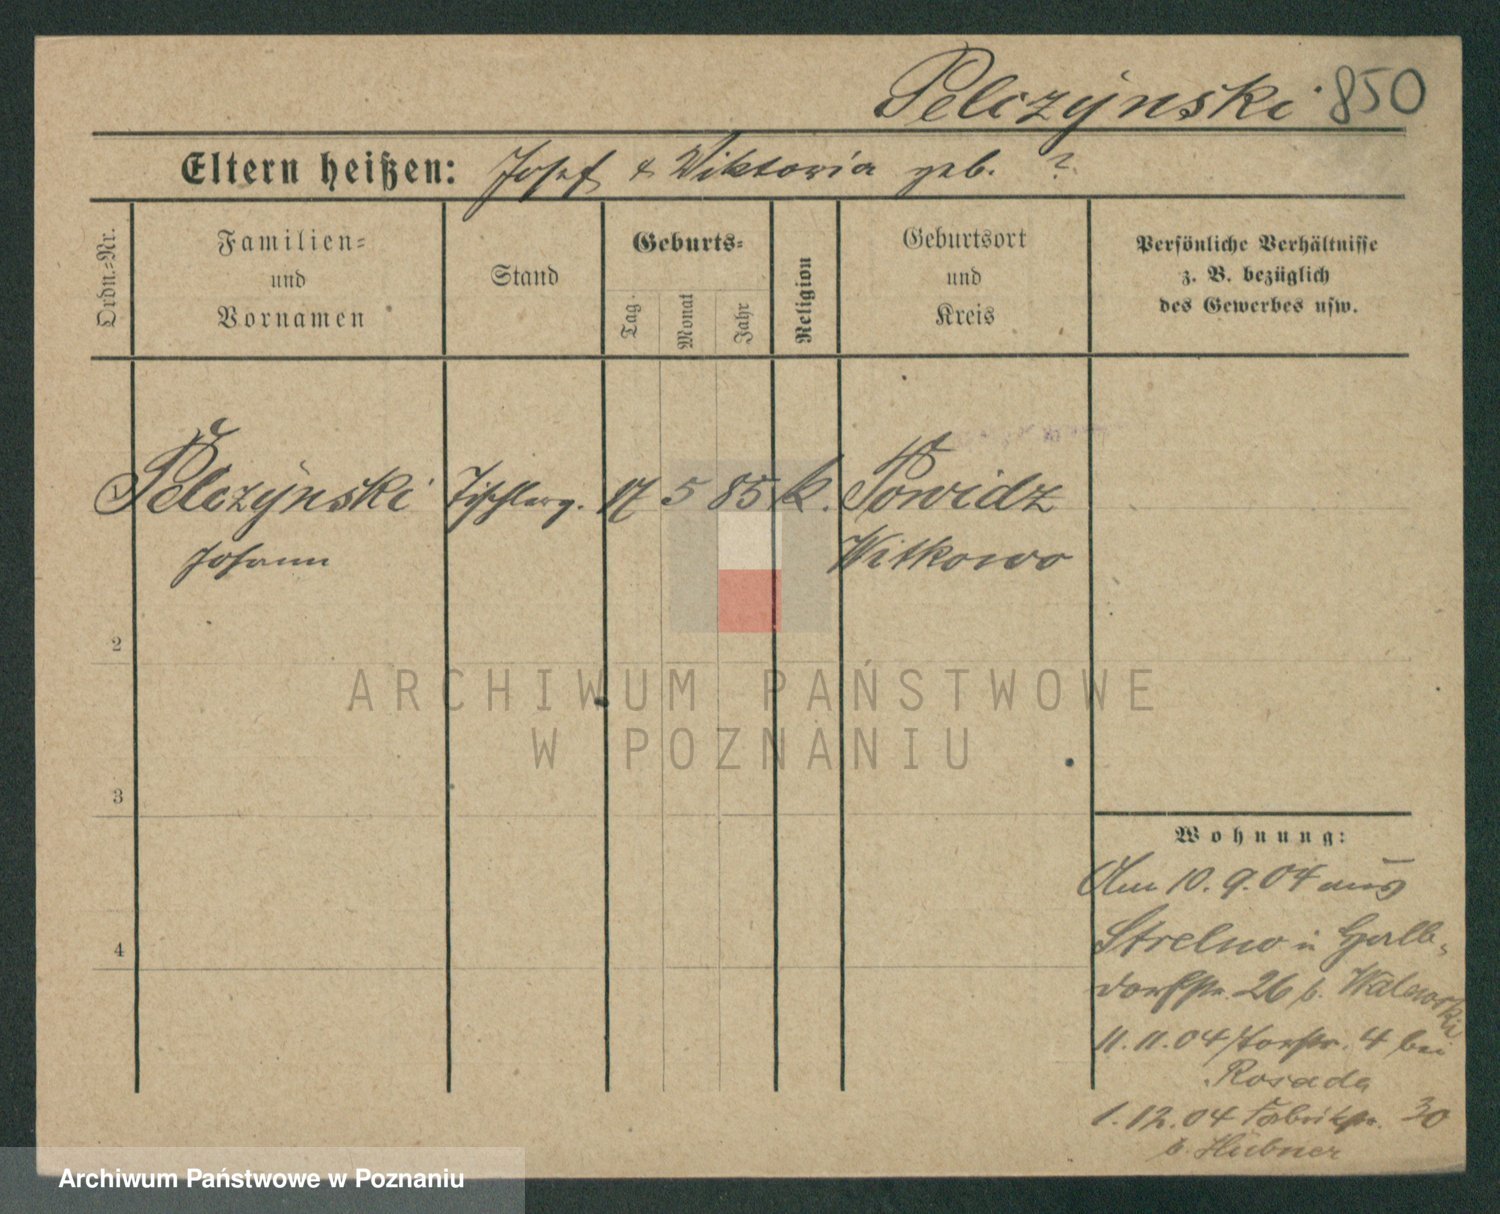 Pelczÿnski 850
Eltern heißen: Josef & Wiktoria geb. ?
Ordn.=Nr.
Familien=
und
Vornamen
Stand
Geburts=
Tag.
Monat
Jahr
Religion
Geburtsort
und
Kreis
Persönliche Verhältnisse
z. B. bezüglich
des Gewerbes usw.
1 Pelczÿnski Tischlerg. 17 5 85 k. Powidz
Johann Witkowo
2
3
4
Wohnung:
Am 10.9.04 aus
Strelno in Halb-
dorfstr. 26 b. Walewski
11.11.04 Torstr. 4 bei
Rosada
1.12.04 Fabrikstr. 30
b. Hübner
ARCHIWUM PAŃSTWOWE
W POZNANIU
Archiwum Państwowe w Poznaniu